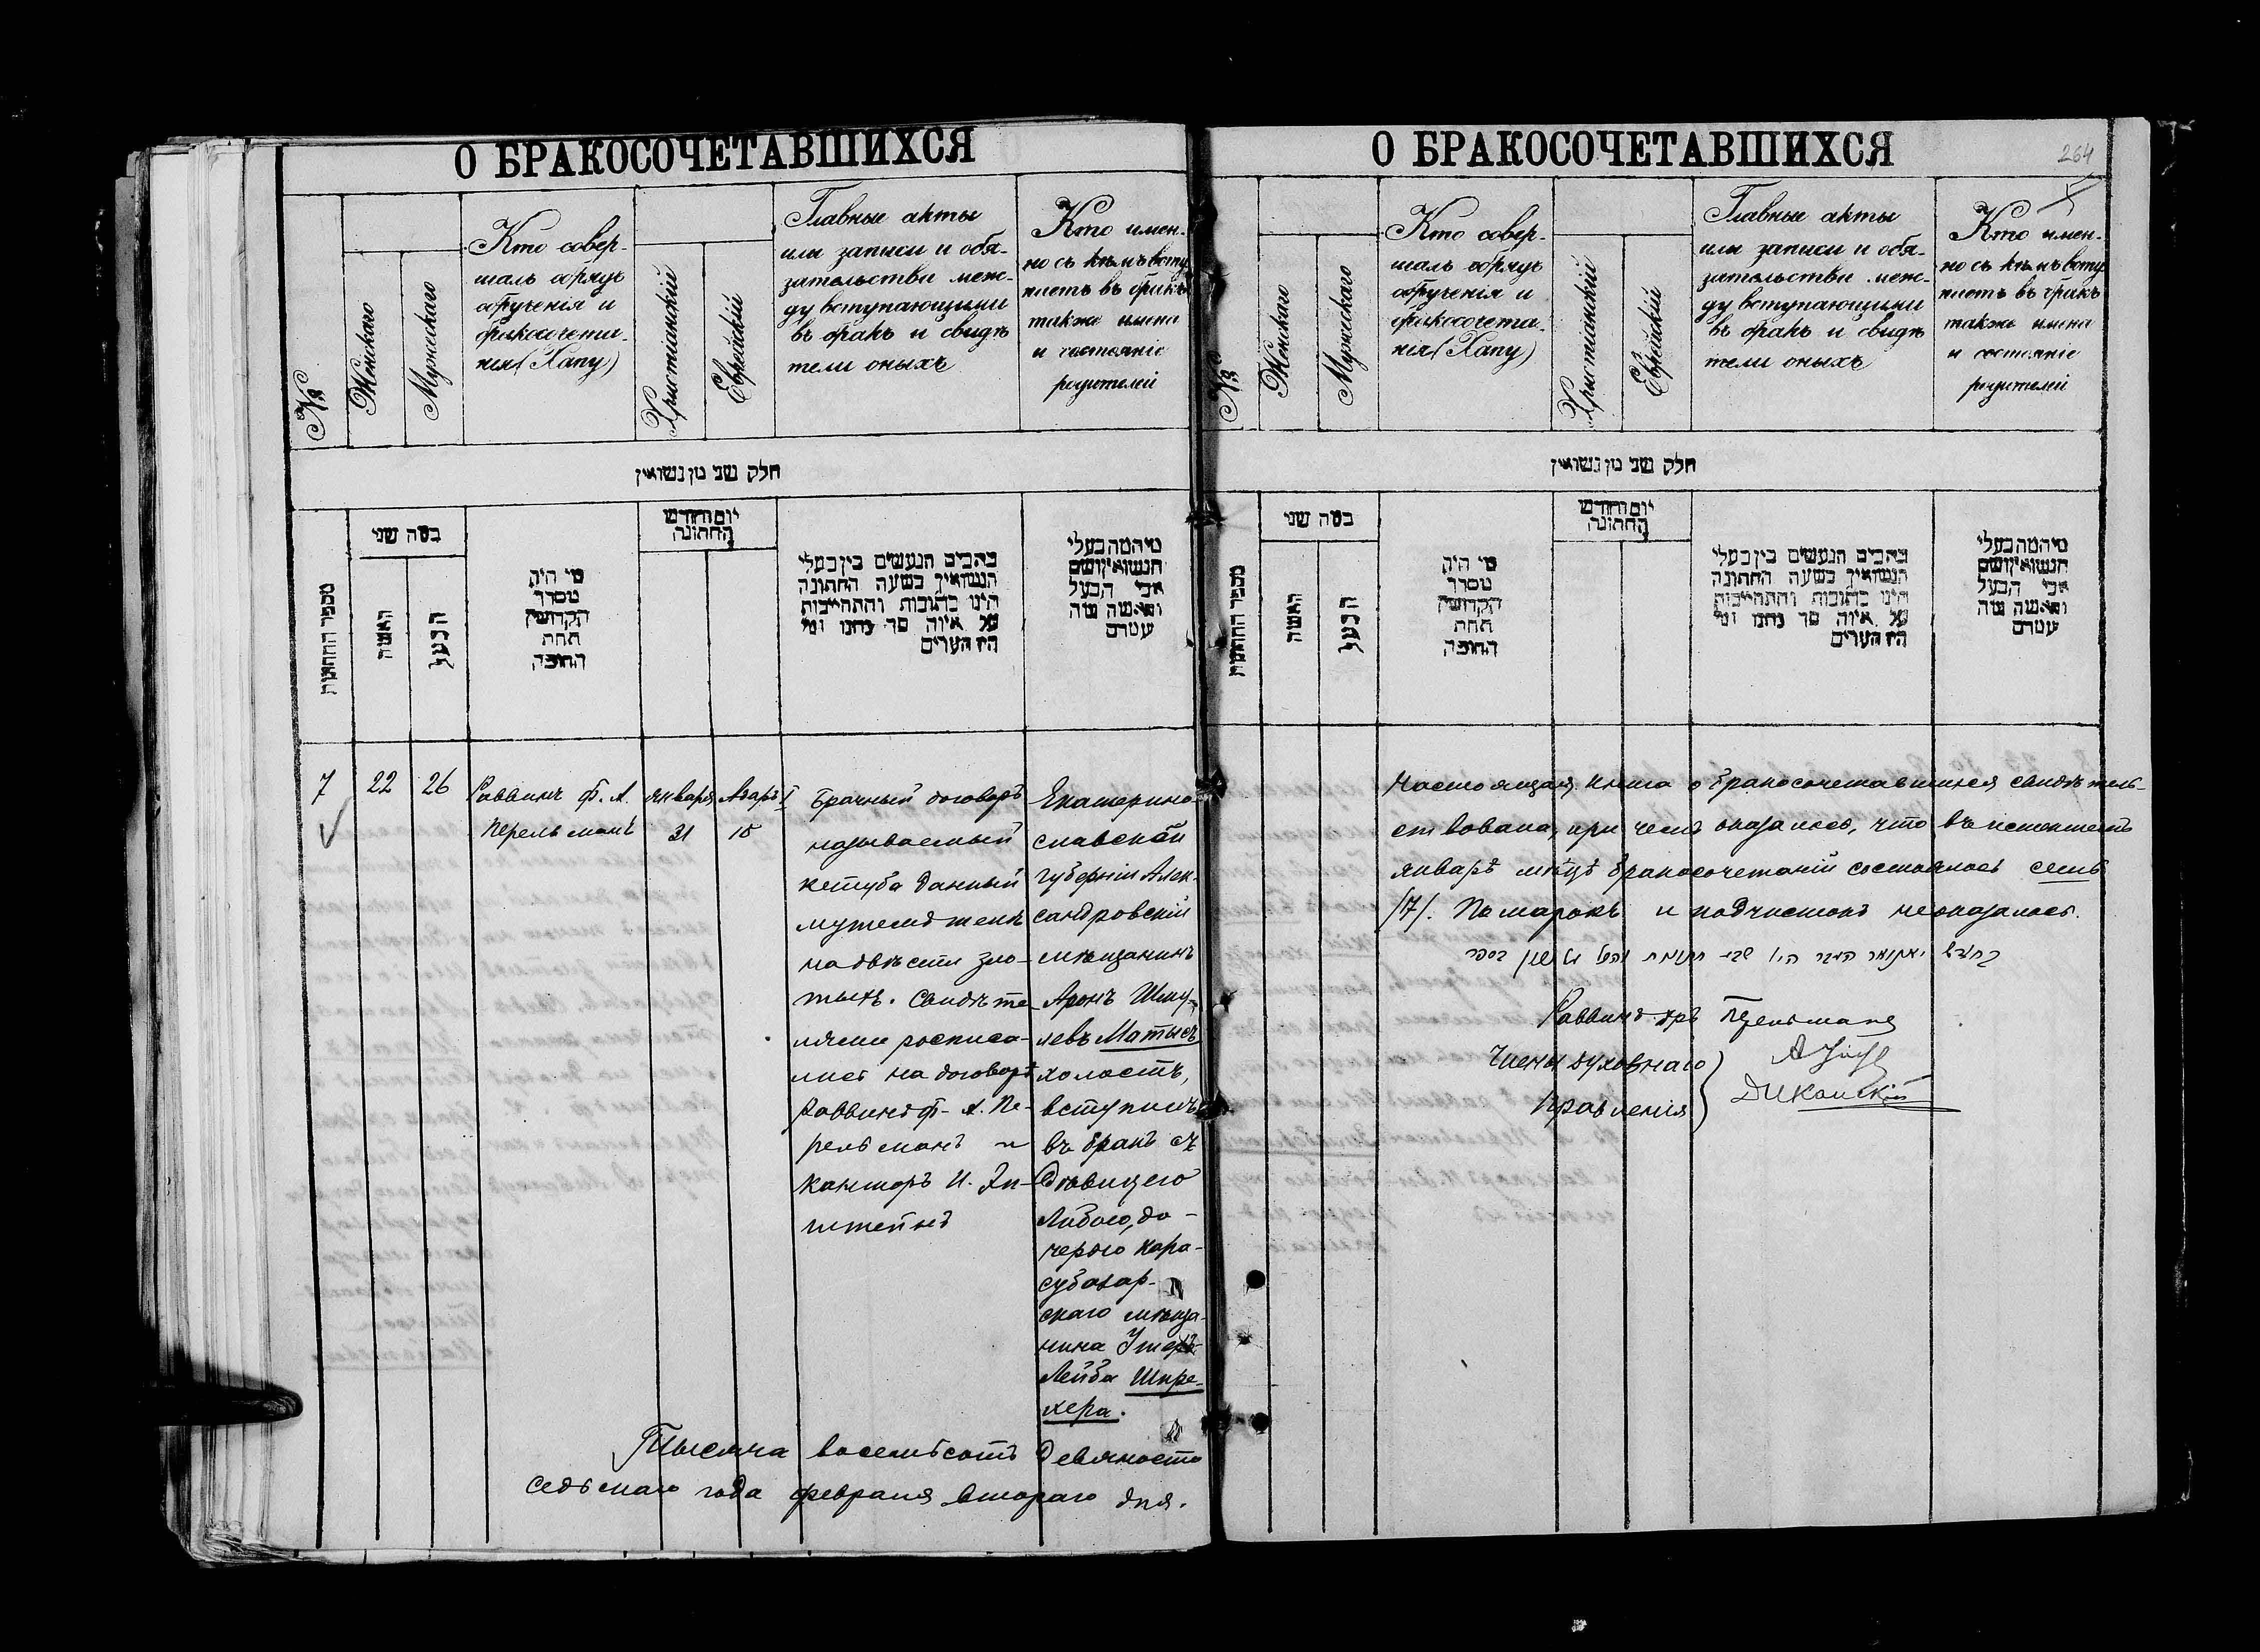 О БРАКОСОЧЕТАВШИХСЯ
№
Женскаго
Мужескаго
Кто совер-
шалъ обрядъ
обрученія и
бракосочета-
нія (Хапу)
Христіанскій
Еврейскій
Главные акты
или записи и обя-
зательства меж-
ду вступающими
въ бракъ и свидѣ
тели оныхъ
Кто имен-
но съ кѣмъ всту
паетъ въ бракъ
также имена
и состояніе
родителей
חלק שני מן נשואין
מספר החתונות
במה שני
האשה
הבעל
מי היה
מסדר
הקדושין
תחת
החופה
יום וחודש
החתונה
כתבים הנעשים בין בעלי
הנשואין בשעה החתונה
היינו כתובות והתחייבות
על איזה סך נתנו ומי
היו העדים
מי המה בעלי
הנשואין ושם
אבי הבעל
והאשה ומה
עמדם
7
22
26
Раввинъ Ф. А.
Перельманъ
Января
31
Адаръ I
10
Брачный договоръ
называемый
кетуба данный
мужемъ женѣ
на двѣсти зло-
тыхъ. Свидѣте
лями росписа-
лись на договорѣ
Раввинъ Ф. А. Пе-
рельманъ и
канторъ И. Эп-
штейнъ
Екатерино-
славской
губерніи Алек-
сандровскій
мѣщанинъ
Аронъ Шму-
левъ Матысъ
холостъ,
вступилъ
въ бракъ съ
дѣвицею
Либою, до-
черью кара-
субазар-
скаго мѣща-
нина
Лейба Шпре-
хера.
Тысяча восемьсотъ девяносто
седьмаго года февраля втораго дня.
О БРАКОСОЧЕТАВШИХСЯ
264
№
Женскаго
Мужескаго
Кто совер-
шалъ обрядъ
обрученія и
бракосочета-
нія (Хапу)
Христіанскій
Еврейскій
Главные акты
или записи и обя-
зательства меж-
ду вступающими
въ бракъ и свидѣ
тели оныхъ
Кто имен-
но съ кѣмъ всту
паетъ въ бракъ
также имена
и состояніе
родителей
חלק שני מן נשואין
מספר החתונות
במה שני
האשה
הבעל
מי היה
מסדר
הקדושין
תחת
החופה
יום וחודש
החתונה
כתבים הנעשים בין בעלי
הנשואין בשעה החתונה
היינו כתובות והתחייבות
על איזה סך נתנו ומי
היו העדים
מי המה בעלי
הנשואין ושם
אבי הבעל
והאשה ומה
עמדם
Настоящая книга о бракосочетавшихся свидѣтель-
ствована, при чемъ оказалось, что въ истекшемъ
январѣ мѣцѣ бракосочетаній состоялось семь
/7/. Помарокъ и подчистокъ не оказалось.
Раввинъ Перельманъ
Члены духовнаго
Правленія